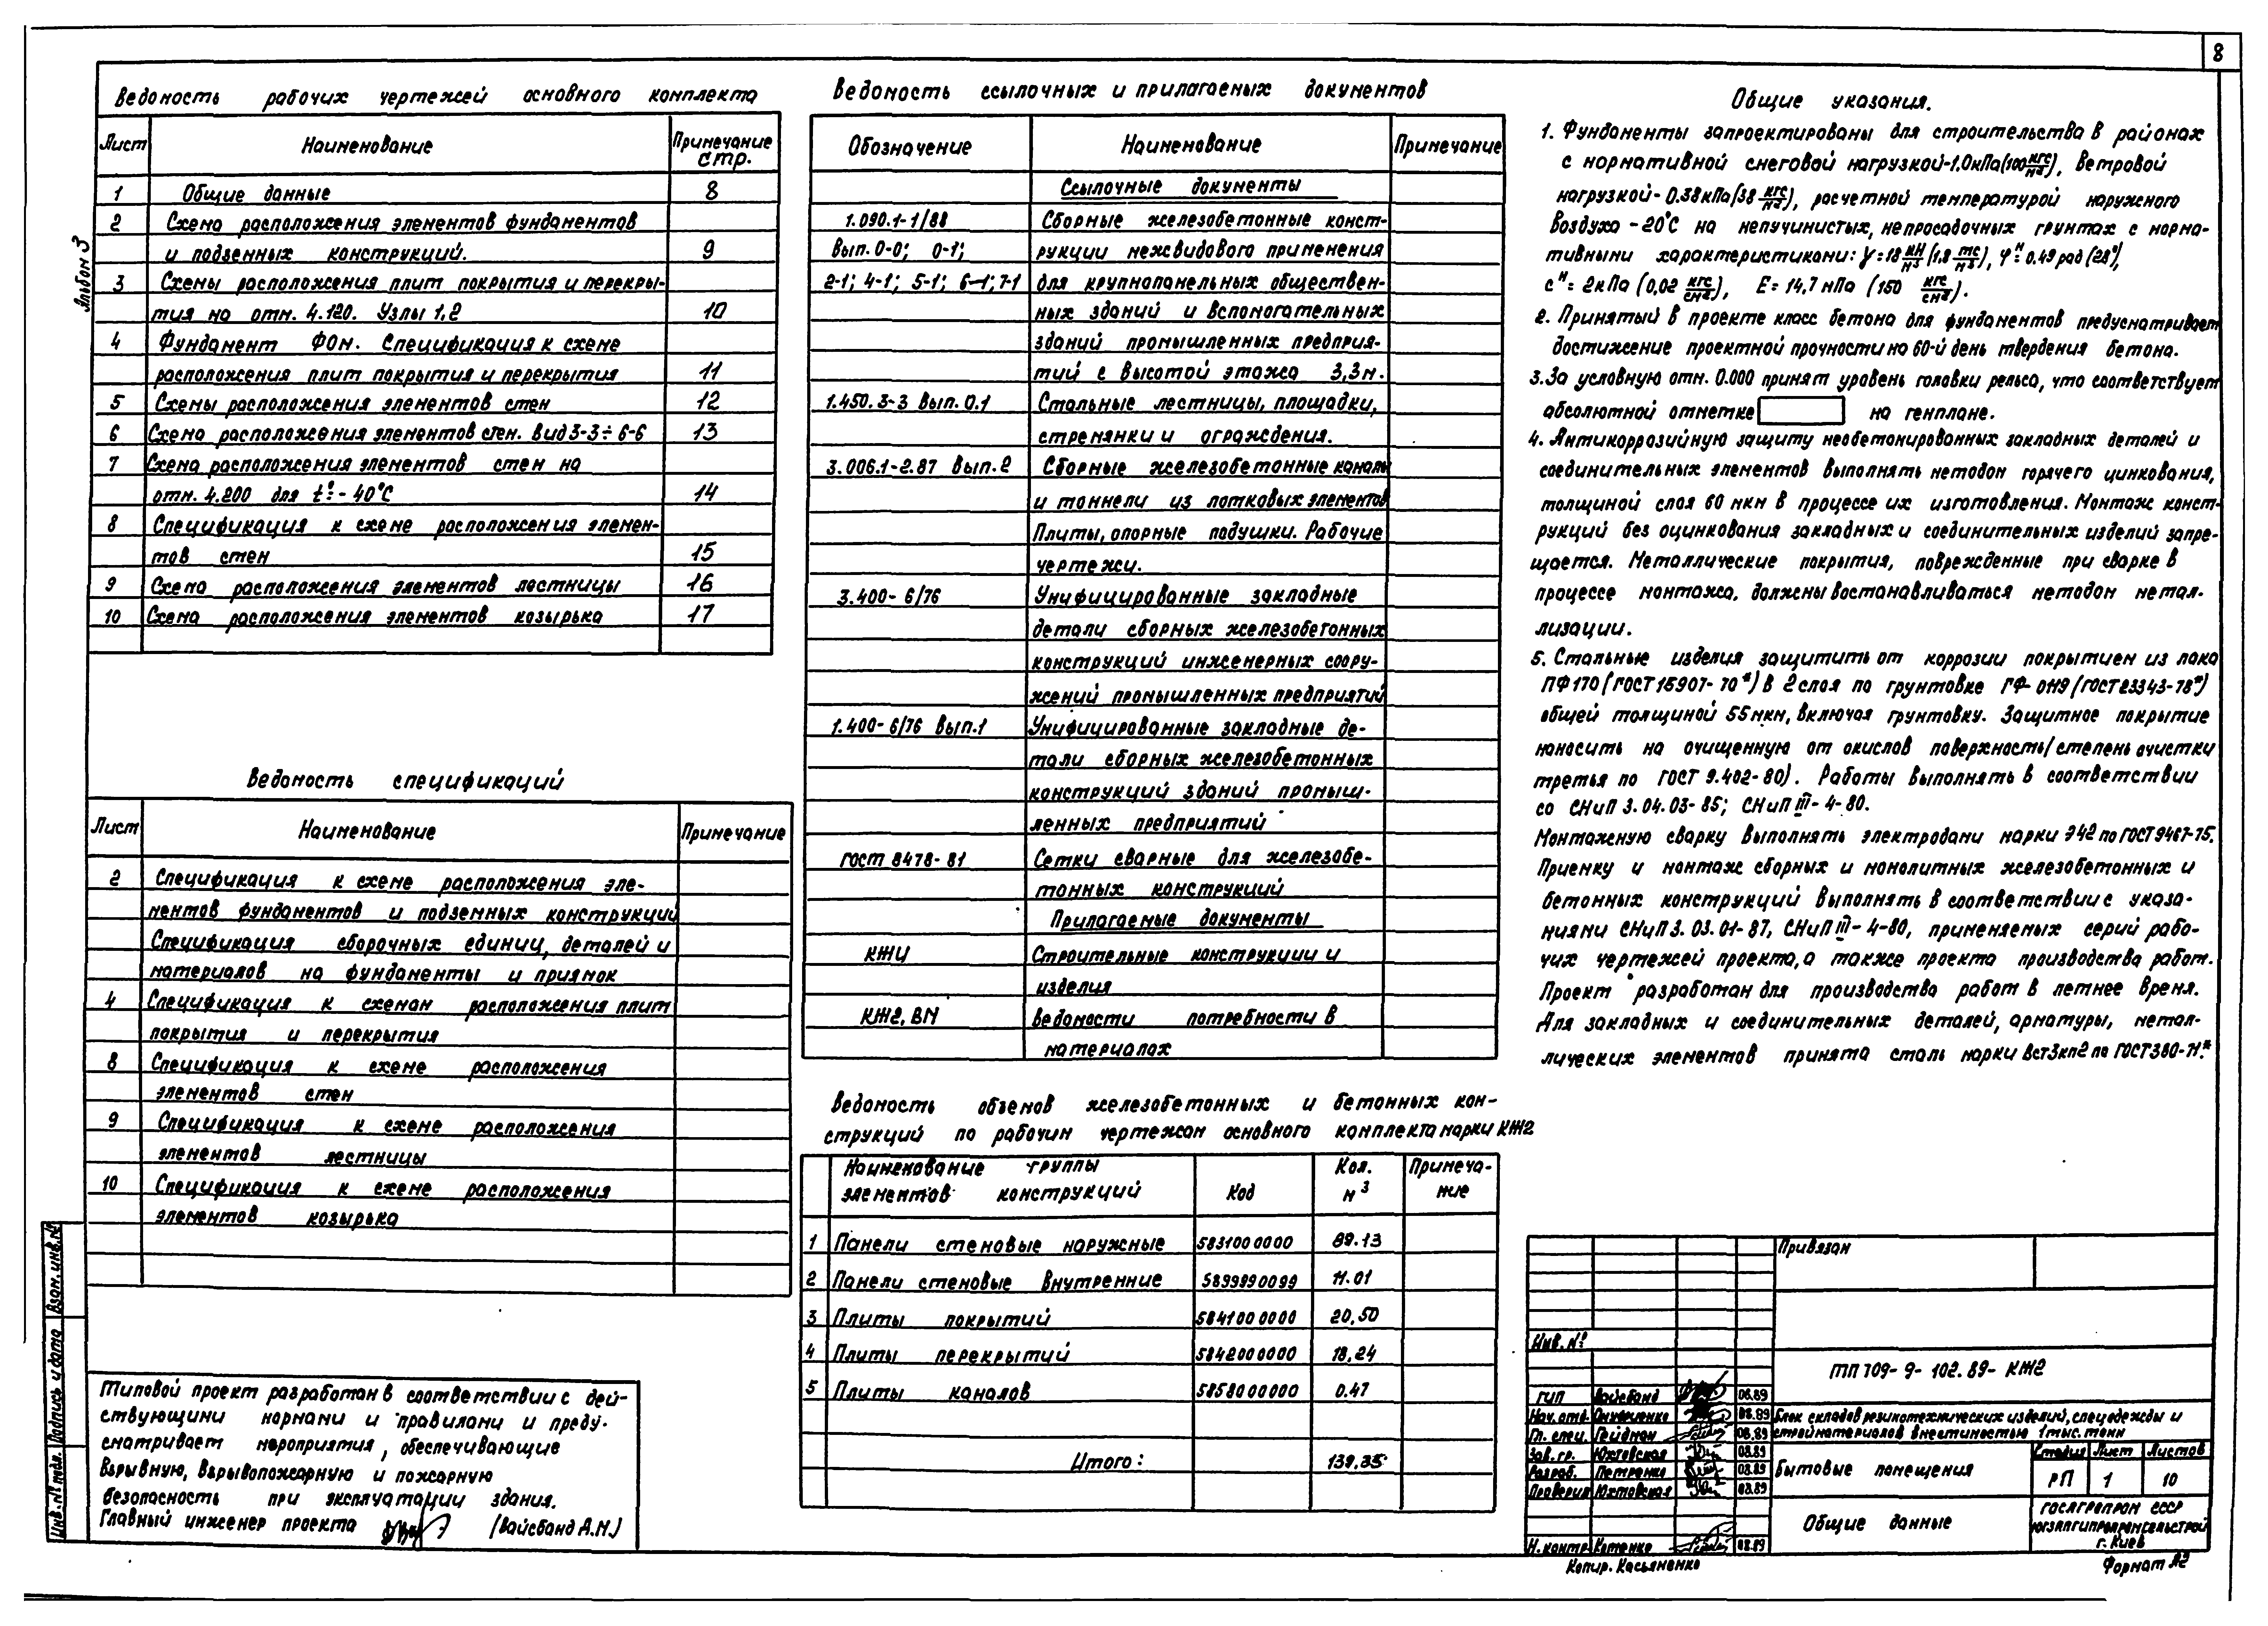 8
Альбом 3
Ведомость рабочих чертежей основного комплекта
Лист Наименование Примечание стр.
1 Общие данные 8
2 Схема расположения элементов фундаментов
и подземных конструкций. 9
3 Схемы расположения плит покрытия и перекры-
тия на отм. 4.120. Узлы 1,2 10
4 Фундамент ФОм. Спецификация к схеме
расположения плит покрытия и перекрытия 11
5 Схемы расположения элементов стен 12
6 Схема расположения элементов стен. Вид 3-3÷6-6 13
7 Схема расположения элементов стен на
отм. 4.200 для t°=-40°С 14
8 Спецификация к схеме расположения элемен-
тов стен 15
9 Схема расположения элементов лестницы 16
10 Схема расположения элементов козырька 17
Ведомость спецификаций
Лист Наименование Примечание
2 Спецификация к схеме расположения эле-
ментов фундаментов и подземных конструкций
Спецификация сборочных единиц, деталей и
материалов на фундаменты и приямок
4 Спецификация к схемам расположения плит
покрытия и перекрытия
8 Спецификация к схеме расположения
элементов стен
9 Спецификация к схеме расположения
элементов лестницы
10 Спецификация к схеме расположения
элементов козырька
Типовой проект разработан в соответствии с дей-
ствующими нормами и правилами и преду-
сматривает мероприятия, обеспечивающие
взрывную, взрывопожарную и пожарную
безопасность при эксплуатации здания.
Главный инженер проекта (Вайсбанд А.М.)
Инв.№ подл. Подпись и дата Взам.инв.№
Ведомость ссылочных и прилагаемых документов
Обозначение Наименование Примечание
Ссылочные документы
1.090.1-1/88 Сборные железобетонные конст-
Вып. 0-0; 0-1; рукции межвидового применения
2-1; 4-1; 5-1; 6-1; 7-1 для крупнопанельных обществен-
ных зданий и вспомогательных
зданий промышленных предприя-
тий с высотой этажа 3,3м.
1.450.3-3 Вып.0.1 Стальные лестницы, площадки,
стремянки и ограждения.
3.006.1-2.87 Вып.2 Сборные железобетонные каналы
и тоннели из лотковых элементов
Плиты, опорные подушки. Рабочие
чертежи.
3.400-6/76 Унифицированные закладные
детали сборных железобетонных
конструкций инженерных соору-
жений промышленных предприятий
1.400-6/76 Вып.1 Унифицированные закладные де-
тали сборных железобетонных
конструкций зданий промыш-
ленных предприятий
ГОСТ 8478-81 Сетки сварные для железобе-
тонных конструкций
Прилагаемые документы
КЖИ Строительные конструкции и
изделия
КЖ2.ВМ Ведомости потребности в
материалах
Ведомость объемов железобетонных и бетонных кон-
струкций по рабочим чертежам основного комплекта марки КЖ2
Наименование группы элементов конструкций Код Кол. м³ Примеча-ние
1 Панели стеновые наружные 5831000000 89.13
2 Панели стеновые внутренние 5899990099 11.01
3 Плиты покрытий 5841000000 20,50
4 Плиты перекрытий 5842000000 18,24
5 Плиты каналов 5858000000 0.47
Итого: 139,35
Общие указания.
1. Фундаменты запроектированы для строительства в районах
с нормативной снеговой нагрузкой-1.0кПа(100кгс/м²), ветровой
нагрузкой-0.38кПа(38 кгс/м²), расчетной температурой наружного
воздуха -20°С на непучинистых, непросадочных грунтах с норма-
тивными характеристиками: γ=18 кН/м³ (1,8 тс/м³), φн=0.49 рад (28°),
сн=2кПа (0,02 кгс/см²), Е=14,7 мПа (150 кгс/см²).
2. Принятый в проекте класс бетона для фундаментов предусматривает
достижение проектной прочности на 60-й день твердения бетона.
3. За условную отм. 0.000 принят уровень головки рельса, что соответствует
абсолютной отметке на генплане.
4. Антикоррозийную защиту необетонированных закладных деталей и
соединительных элементов выполнять методом горячего цинкования,
толщиной слоя 60 мкм в процессе их изготовления. Монтаж конст-
рукций без оцинкования закладных и соединительных изделий запре-
щается. Металлические покрытия, поврежденные при сварке в
процессе монтажа, должны востанавливаться методом метал-
лизации.
5. Стальные изделия защитить от коррозии покрытием из лака
ПФ170 (ГОСТ 15907-70*) в 2 слоя по грунтовке ГФ-0119 (ГОСТ 23343-78*)
общей толщиной 55мкм, включая грунтовку. Защитное покрытие
наносить на очищенную от окислов поверхность (степень очистки
третья по ГОСТ 9.402-80). Работы выполнять в соответствии
со СНиП 3.04.03-85; СНиП III-4-80.
Монтажную сварку выполнять электродами марки Э42 по ГОСТ 9467-75.
Приемку и монтаж сборных и монолитных железобетонных и
бетонных конструкций выполнять в соответствии с указа-
ниями СНиП 3.03.01-87, СНиП III-4-80, применяемых серий рабо-
чих чертежей проекта, а также проекта производства работ.
Проект разработан для производства работ в летнее время.
Для закладных и соединительных деталей, арматуры, метал-
лических элементов принята сталь марки Вст3кп2 по ГОСТ 380-71*
Привязан
Инв.№
ТП 709-9-102.89-КЖ2
ГИП Вайсбанд 08.89
Нач.отд. 08.89
Гл. спец. Гейдман 08.89
Зав. гр. Юхтовская 08.89
Разраб. Петренко 08.89
Проверил Юхтовская 08.89
Н.контр. Котенко 08.89
Блок складов резинотехнических изделий, спецодежды и
стройматериалов вместимостью 1 тыс. тонн
Бытовые помещения
Стадия Лист Листов
РП 1 10
Общие данные
ГОСАГРОПРОМ СССР
ЮГЗАПГИПРОПРОМСЕЛЬСТРОЙ
г. Киев
Копир. Касьяненко
Формат А2